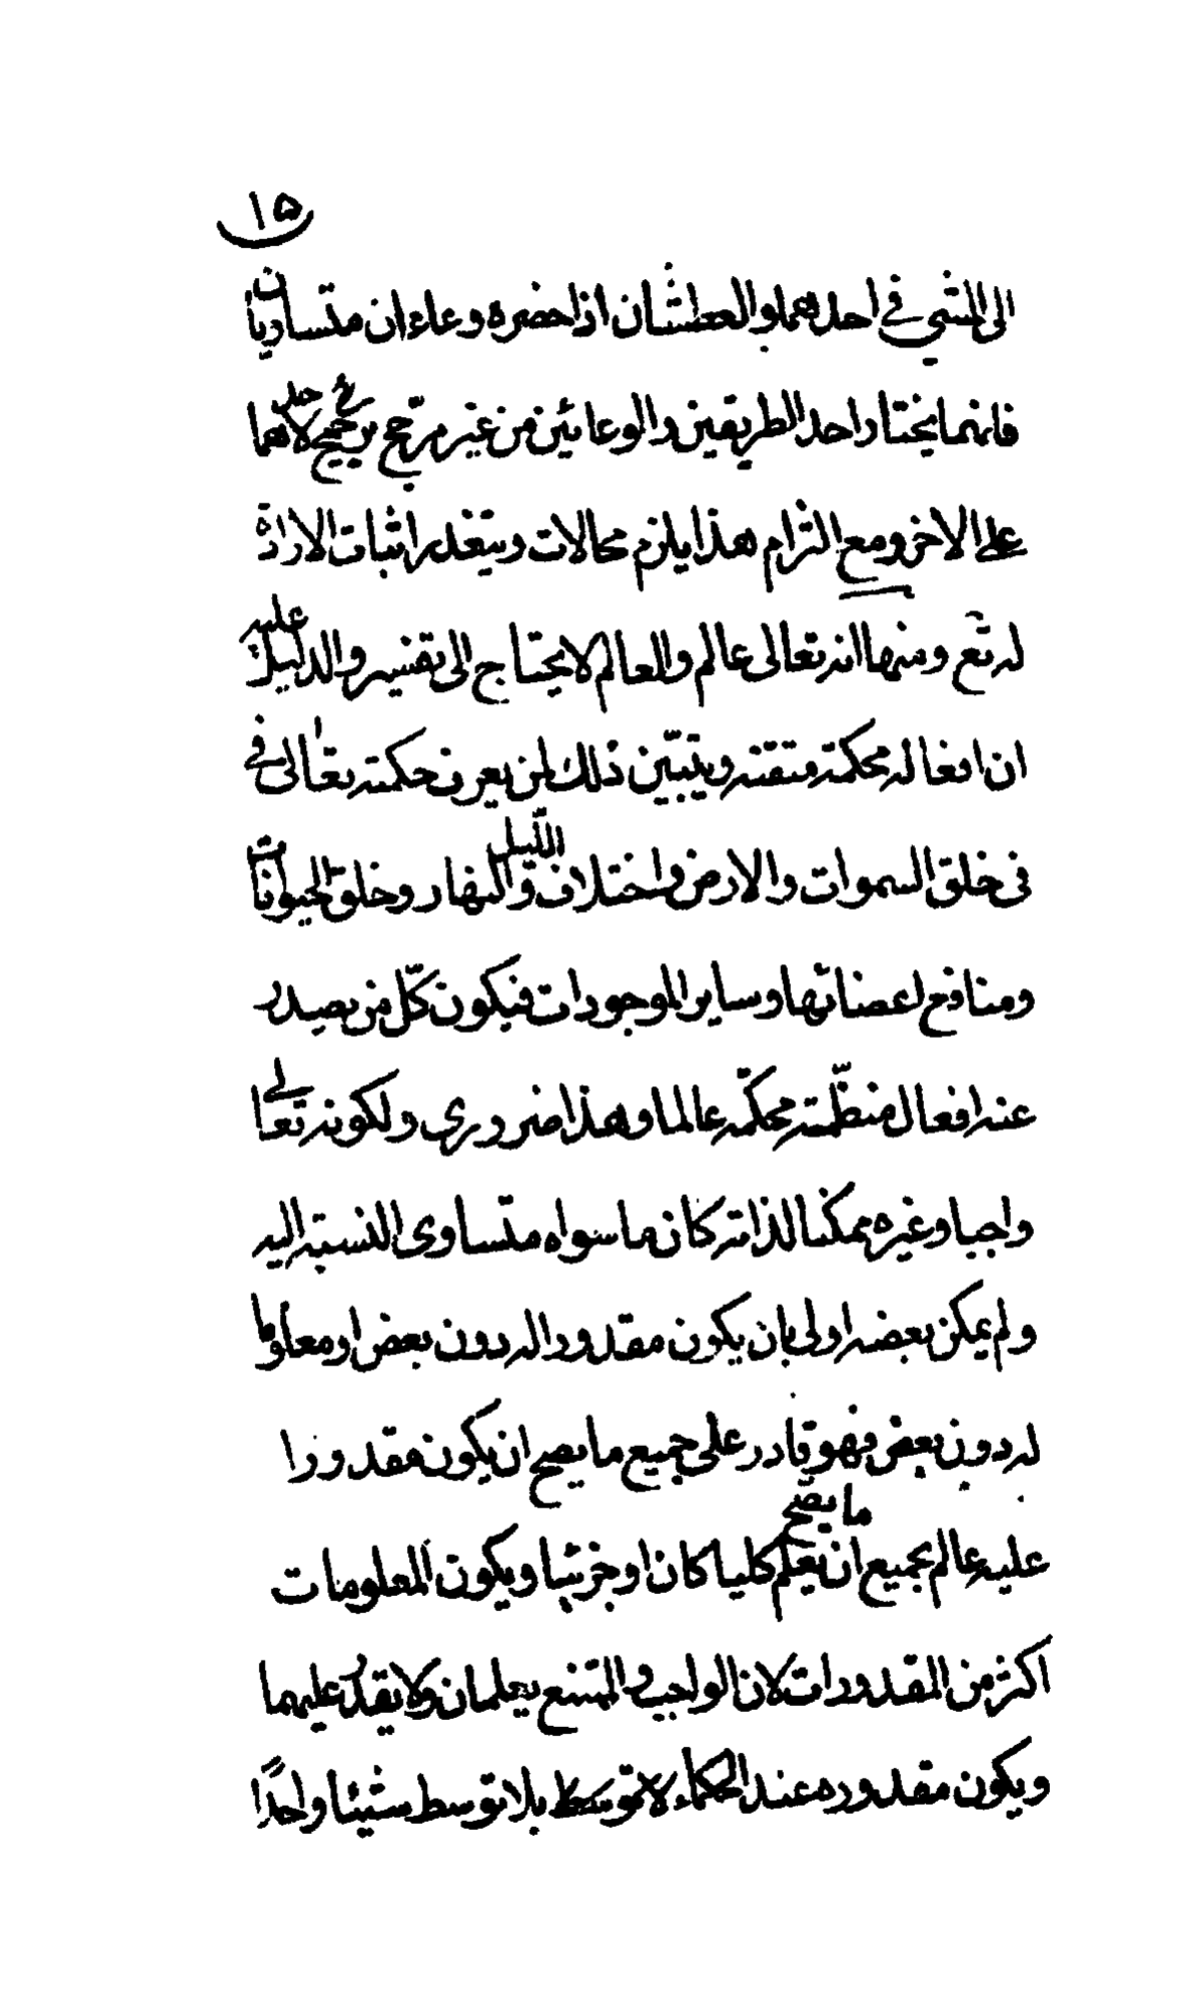 ١٥
الى المشي في احدهما والعطشان اذا حضره وعاءان متساويان
فانهما يختار احد الطريقين والوعائين من غير مرجح يرجح لاحدهما
على الاخر ومع التزام هذا يلزم محالات ويتعذر اثبات الارادة
له تع ومنها انه تعالى عالم والعالم لا يحتاج الى تفسير والدليل عليه
ان افعاله محكمة متقنة ويتبيّن ذلك لمن يعرف حكمته تعالى في
في خلق السموات والارض واختلاف اللّيل والنهار وخلق الحيوانات
ومنافع اعضائها وساير الموجودات فيكون كلّ من يصدر
عنه افعال منظّمة محكمة عالما وهذا ضروري ولكونه تعالى
واجبا وغيره ممكنا لذاته كان ما سواه متساوى النسبة اليه
ولم يمكن بعضه اولى بان يكون مقدورا له دون بعض او معلوما
له دون بعض فهو قادر على جميع ما يصح ان يكون مقدورا
عليه عالم بجميع ما يصحّ ان يعلم كليا كان او جزئيا ويكون المعلومات
اكثر من المقدورات لان الواجب والممتنع يعلمان ولا يقدر عليهما
ويكون مقدوره عند الحكماء بلا توسط شيئا واحدًا